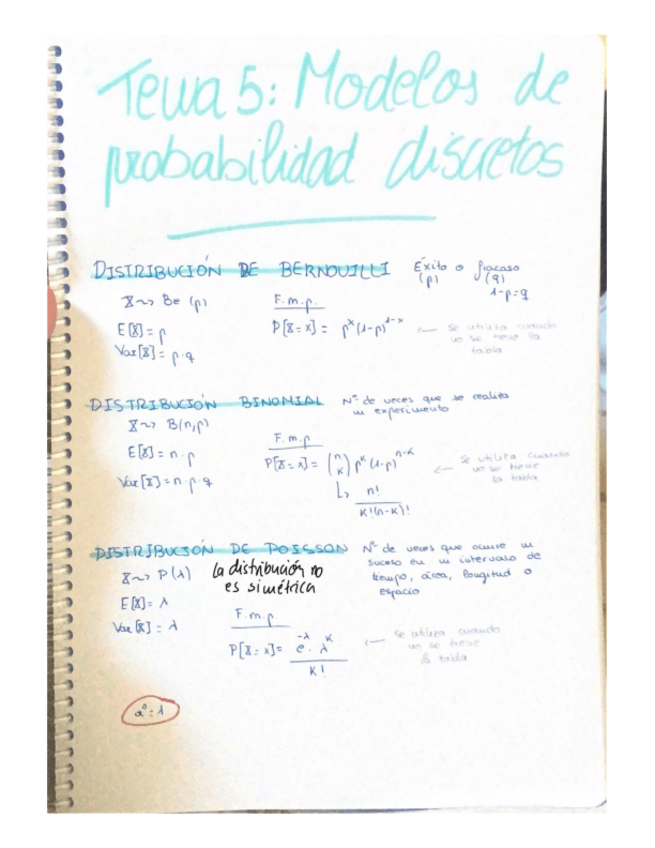 Tema 5: Modelos de
probabilidad discretos
DISTRIBUCIÓN DE BERNOUILLI Éxito o fracaso
(p) (q)
1-p=q
X ~> Be (p) F.m.p.
E[X] = p P[X=x] = p^x (1-p)^{1-x} ← se utiliza cuando
no se tiene la
tabla
Var[X] = p·q
DISTRIBUCIÓN BINOMIAL Nº de veces que se realiza
un experimento
X ~> B(n,p)
F.m.p
E[X] = n·p P[X=x] = (n k) p^k (1-p)^{n-k} ← se utiliza cuando
no se tiene
la tabla
Var[X] = n·p·q
↳ n!
K!(n-K)!
DISTRIBUCIÓN DE POISSON Nº de veces que ocurre un
suceso en un intervalo de
tiempo, área, longitud o
espacio
X ~> P(λ) la distribución no
es simétrica
E[X] = λ
Var[X] = λ
F.m.p
P[X=x] = e^{-λ}·λ^K ← se utiliza cuando
no se tiene
la tabla
K!
a^0=1